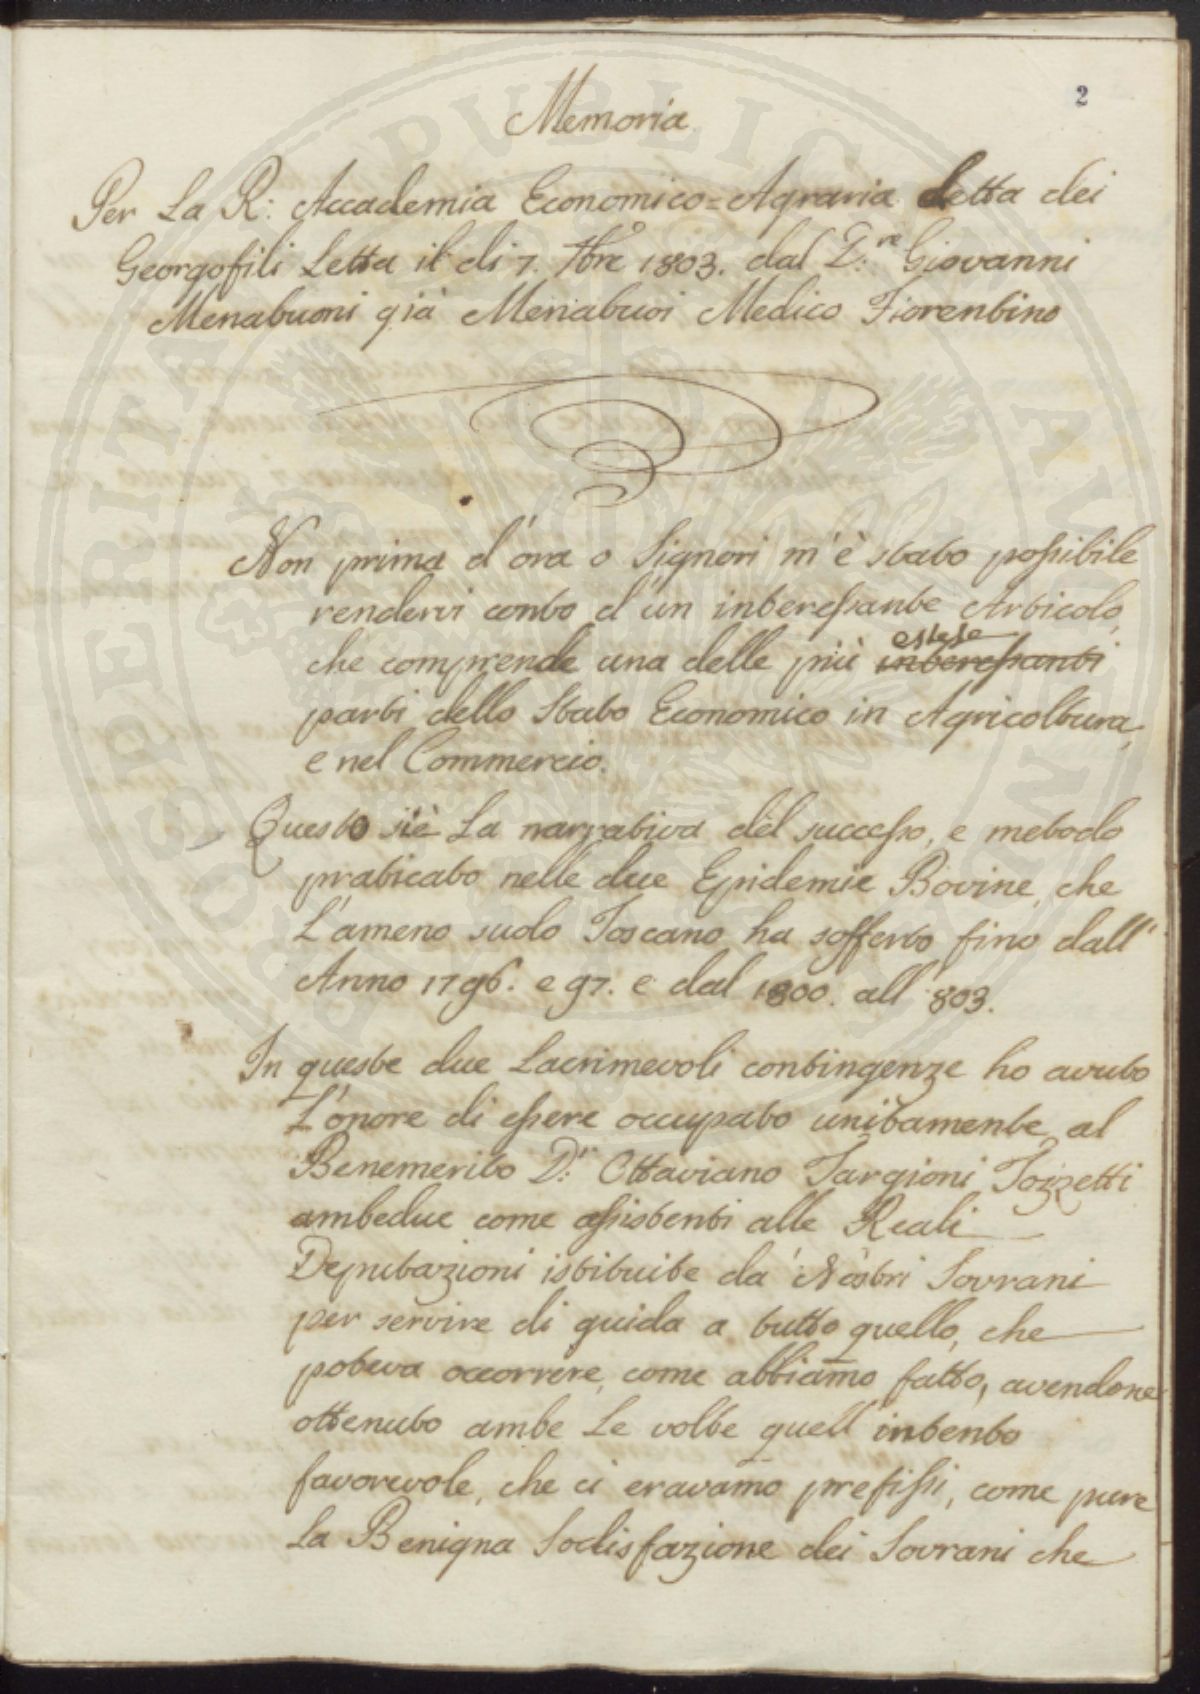 2
Memoria
Per La R: Accademia Economico=Agraria detta dei
Georgofili Letta il di 7. 7bre 1803. dal D:re Giovanni
Menabuoni già Menabuoi Medico Fiorentino
Non prima d'ora o Signori m'è stato possibile
rendervi conto d'un interessante Articolo,
che comprende una delle più estese interessanti
parti dello Stato Economico in Agricoltura,
e nel Commercio.
Questo si è La narrativa del successo, e metodo
praticato nelle due Epidemie Bovine, che
L'ameno suolo Toscano ha sofferto fino dall'
Anno 1796. e 97. e dal 1800. all' 803.
In queste due Lacrimevoli contingenze ho avuto
L'onore di essere occupato unitamente al
Benemerito D:r Ottaviano Targioni Tozzetti
ambedue come assistenti alle Reali
Deputazioni istituite da' Nostri Sovrani
per servire di guida a tutto quello, che
poteva occorrere, come abbiamo fatto, avendone
ottenuto ambe Le volte quell'intento
favorevole, che ci eravamo prefissi, come pure
La Benigna Sodisfazione dei Sovrani che
PROSPERITATI PUBLICAE AUGENDAE